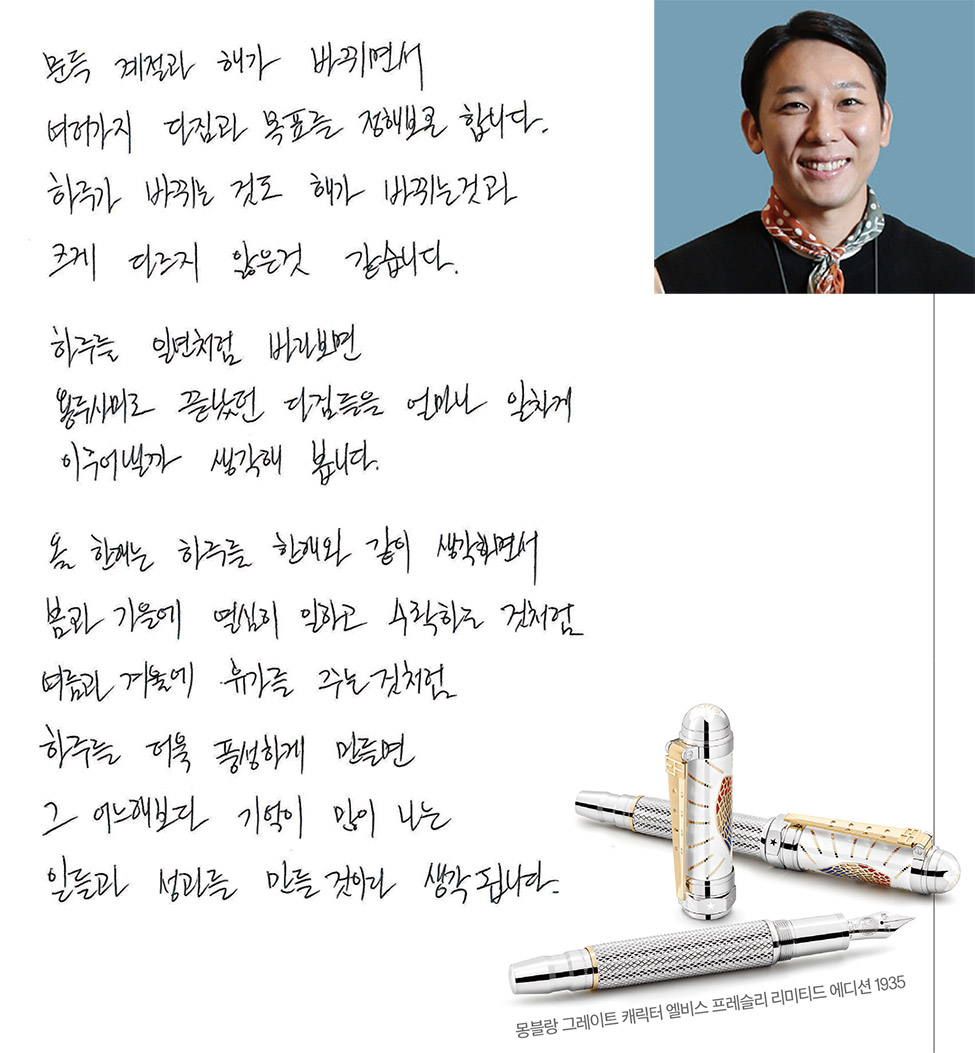 문득 계절과 해가 바뀌면서
여러가지 다짐과 목표를 정해보곤 합니다.
하루가 바뀌는 것도 해가 바뀌는것과
크게 다르지 않은것 같습니다.
하루를 일년처럼 바라보면
용두사미로 끝났던 다짐들을 얼마나 알차게
이루어낼까 생각해 봅니다.
올 한해는 하루를 한해와 같이 생각하면서
봄과 가을에 열심히 일하고 수확하는 것처럼
여름과 겨울에 휴가를 주는것처럼
하루를 더욱 풍성하게 만들면
그 어느해보다 기억이 많이 나는
일들과 성과를 만들 것이라 생각됩니다.
몽블랑 그레이트 캐릭터 엘비스 프레슬리 리미티드 에디션 1935